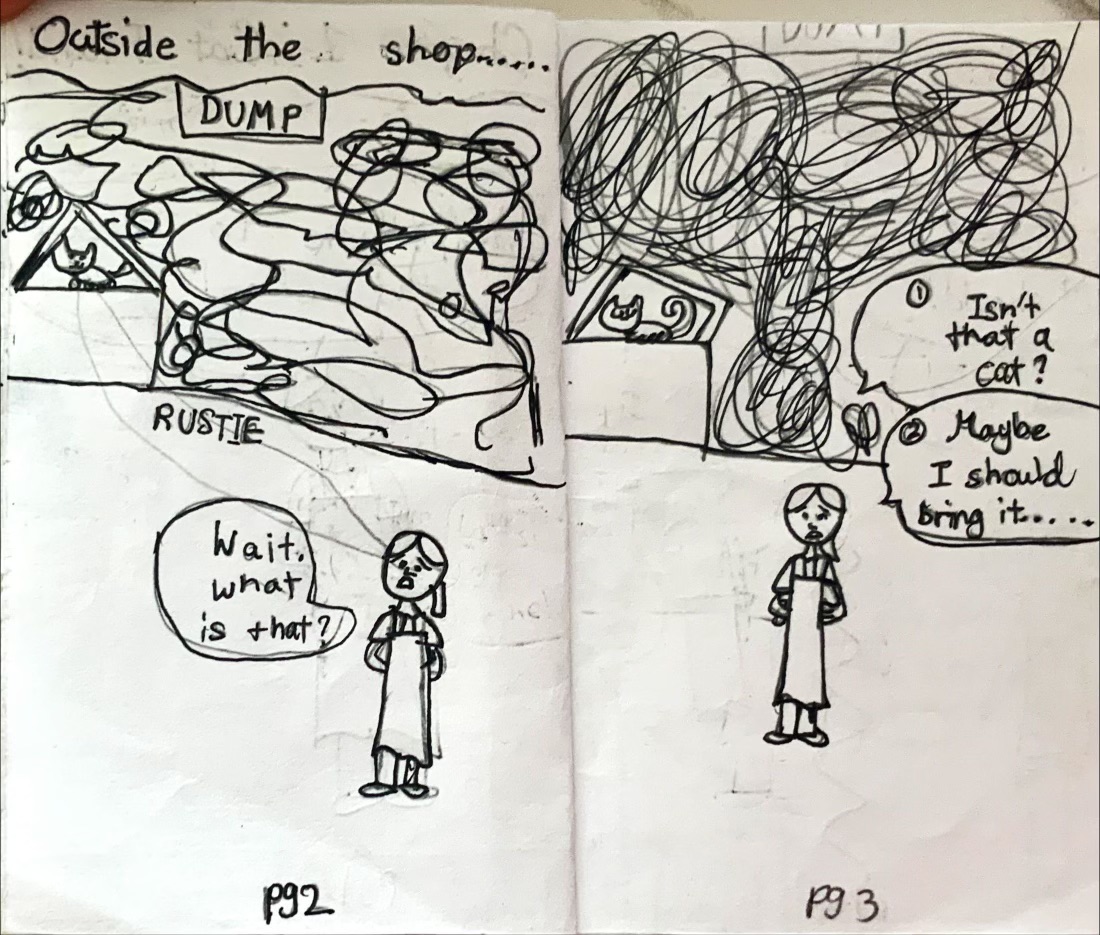 Outside the shop......
DUMP
RUSTIE
Wait.
what
is that?
pg2
DUMP
① Isn't
that a
cat?
② Maybe
I should
bring it.....
pg 3